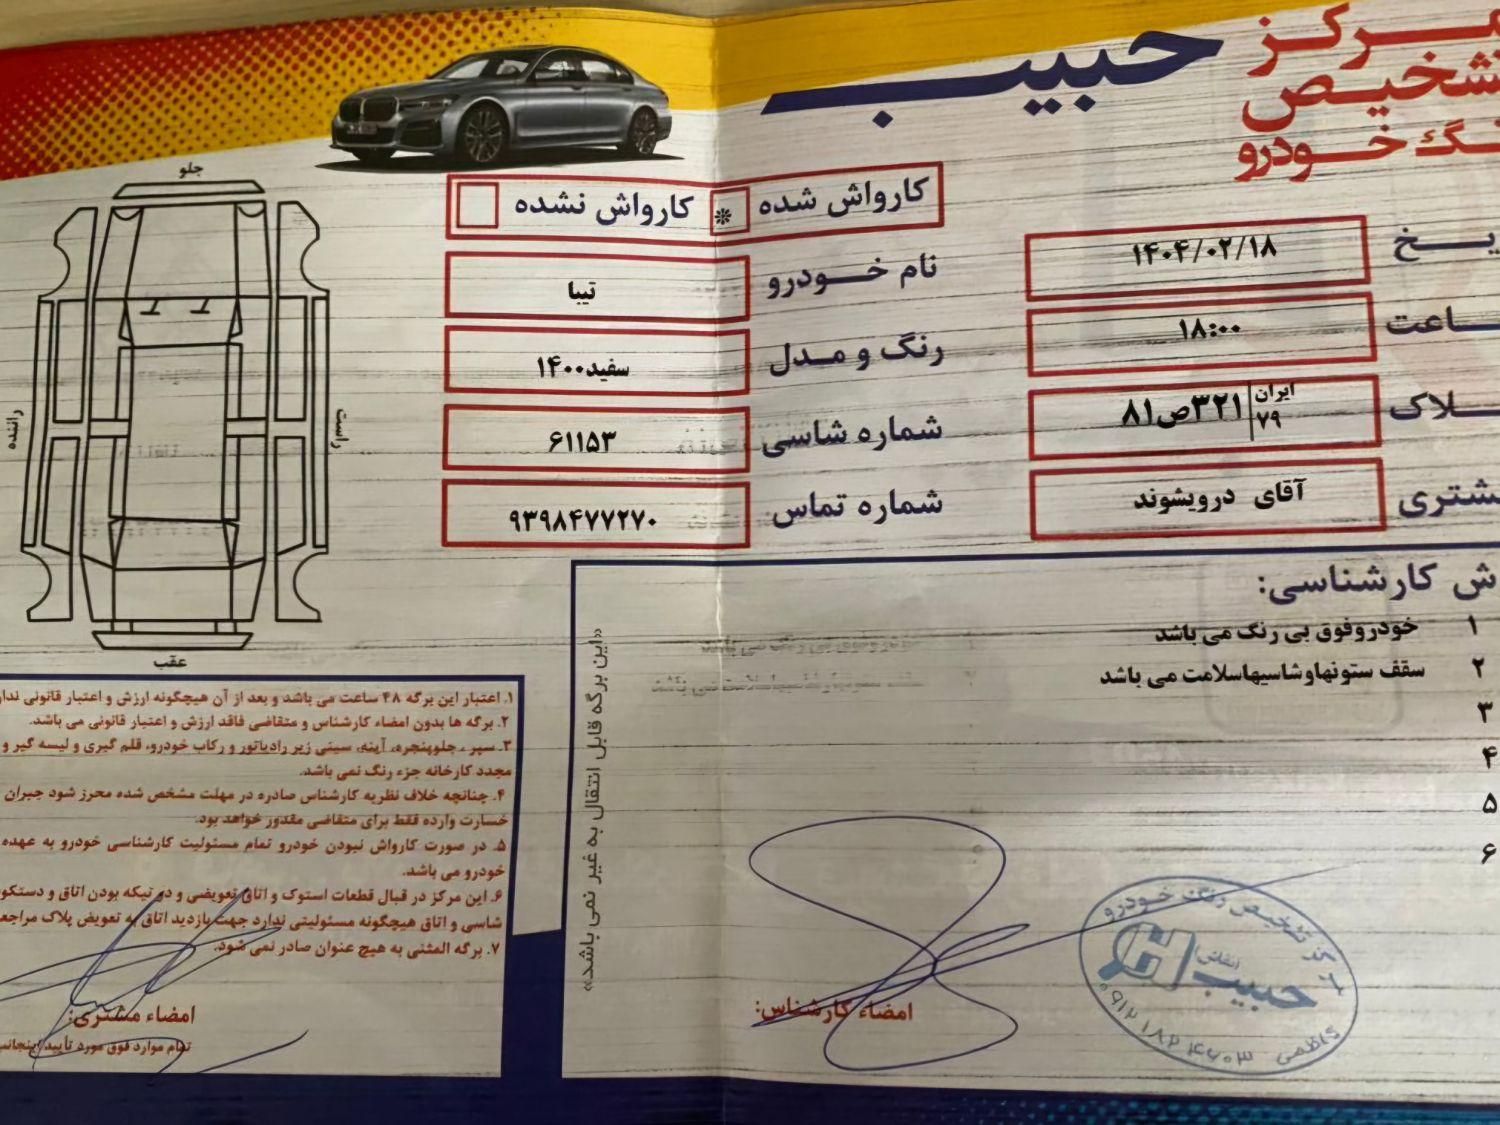 حبیب
مرکز
تشخیص
رنگ خودرو
کارواش شده *
کارواش نشده
۱۴۰۴/۰۲/۱۸
نام خودرو
تیبا
ساعت
۱۸:۰۰
رنگ و مدل
سفید۱۴۰۰
پلاک
ایران
۷۹
۳۲۱ص۸۱
شماره شاسی
۶۱۱۵۳
مشتری
آقای درویشوند
شماره تماس
۹۳۹۸۴۷۷۲۷۰
جلو
راننده
راست
عقب
کارشناسی:
۱ خودروفوق بی رنگ می باشد
۲ سقف ستونهاوشاسیهاسلامت می باشد
۳
۴
۵
۶
«این برگه قابل انتقال به غیر نمی باشد»
۱. اعتبار این برگه ۴۸ ساعت می باشد و بعد از آن هیچگونه ارزش و اعتبار قانونی ندارد
۲. برگه ها بدون امضاء کارشناس و متقاضی فاقد ارزش و اعتبار قانونی می باشد.
۳. سپر ، جلوپنجره، آینه، سینی زیر رادیاتور و رکاب خودرو، قلم گیری و لیسه گیر و
مجدد کارخانه جزء رنگ نمی باشد.
۴. چنانچه خلاف نظریه کارشناس صادره در مهلت مشخص شده محرز شود جبران
خسارت وارده فقط برای متقاضی مقدور خواهد بود.
۵. در صورت کارواش نبودن خودرو تمام مسئولیت کارشناسی خودرو به عهده
خودرو می باشد.
۶. این مرکز در قبال قطعات استوک و اتاق تعویضی و دو تیکه بودن اتاق و دستکو
شاسی و اتاق هیچگونه مسئولیتی ندارد جهت بازدید اتاق به تعویض پلاک مراجعه
۷. برگه المثنی به هیچ عنوان صادر نمی شود.
امضاء مشتری:
تمام موارد فوق مورد تأیید اینجانب
امضاء کارشناس:
مرکز تشخیص رنگ خودرو
حبیب
کاظمی